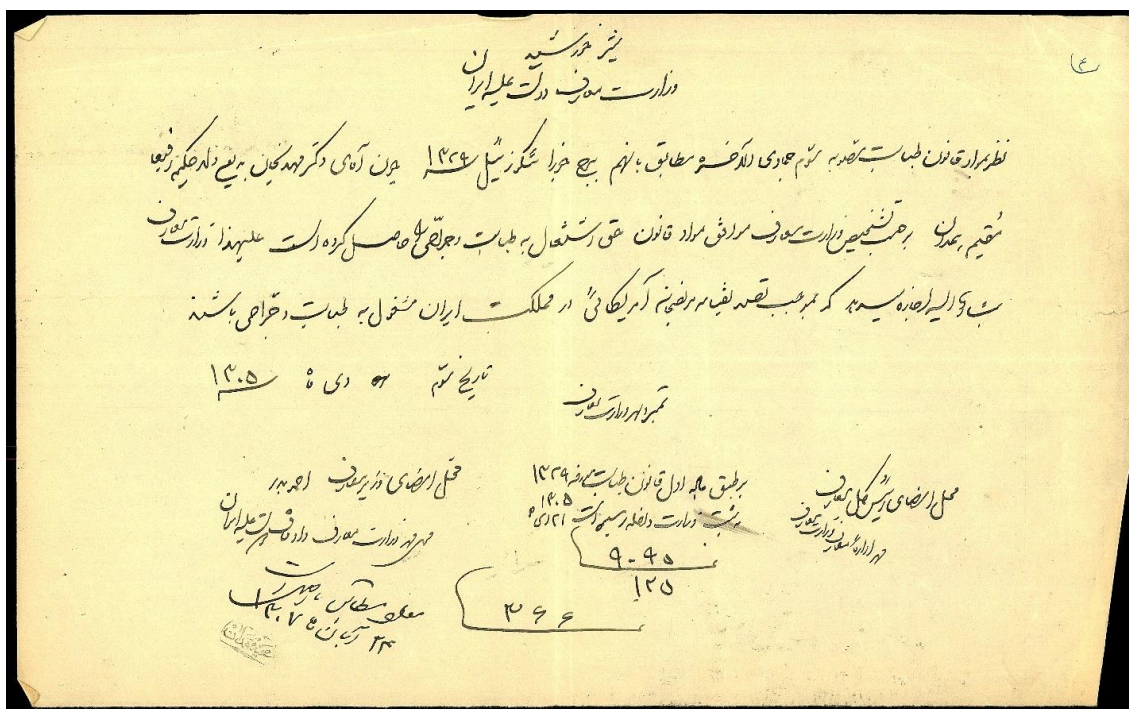 (۴)
شیر خورشید
وزارت معارف دولت علیه ایران
نظر بمواد قانون طبابت مصوبه سوم جمادی الاخره مطابق با نهم برج جوزا ۱۳۲۹ چون آقای دکتر مهدیخان بدیع ولد حکیم رفیعا
مقیم همدان برحسب تشخیص وزارت معارف موافق مواد قانون حق اشتغال به طبابت و جراحی را حاصل کرده است علیهذا وزارت معارف
اجازه میدهد که بموجب تصدیقنامه مریضخانه آمریکائی در مملکت ایران مشغول به طبابت و جراحی باشند
تاریخ سوم دی ماه ۱۳۰۵
تمبر و مهر وزارت معارف
محل امضای رئیس کل معارف
مهر اداره معارف وزارت معارف
برطبق ماده اول قانون طبابت مورخه ۱۳۲۹
به ثبت وزارت داخله رسیده است ۲۱ دی ماه ۱۳۰۵
۹۰۹۵
۱۲۵
۳۶۶
محل امضای وزیر معارف احمد بدر
مهر وزارت معارف و اوقاف دولت علیه ایران
سواد مطابق با اصل است
۲۴ آبان ماه ۱۳۰۷